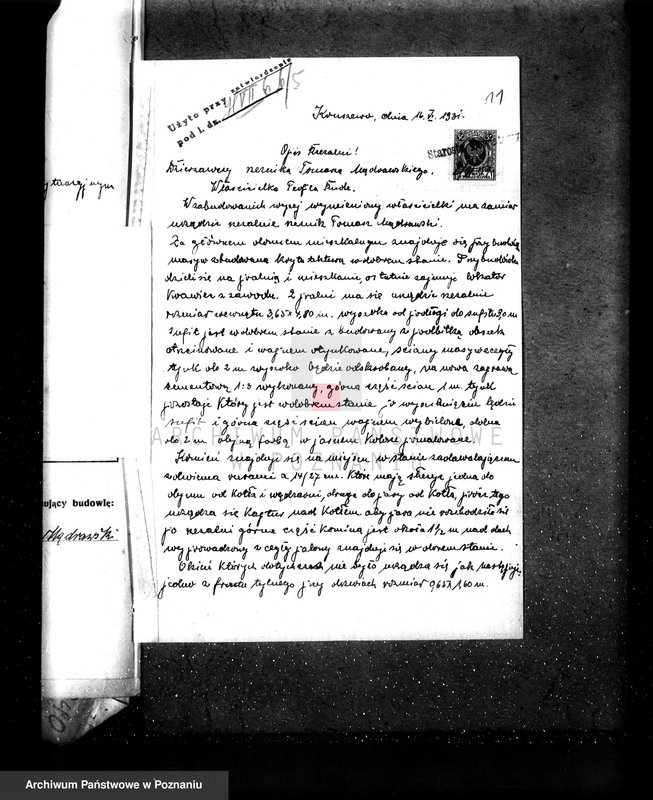 11
Użyto przy zatwierdzenie
pod l. dz.
Kruszewo, dnia 16. VI. 1931.
Starost
Opis Rzeźalni!
Dzierżawcy rzeźnika Tomasza Mądrawskiego.
Właścicielka Teofila Rude.
W zabudowaniach wyżej wymienionej właścicielki ma zamiar
urządzić rzeźalnie rzeźnik Tomasz Mądrawski.
Za głównem domem mieszkalnym znajduje się przybudówka
masywna zbudowana kryta tekturą w dobrem stanie. Przybudówka
dzieli się na pralnię i mieszkanie, ostatnie zajmuje lokator
Krawiec z zawodu. Z pralni ma się urządzić rzeźalnie
rozmiar wewnątrz 3,65 x 3,80 m. wysoka od podłogi do sufitu 3,0 m
Sufit jest w dobrem stanie zbudowany z podbitką desek
otrzcinowane i wapnem otynkowane, ściany masywne z cegły
tynk do 2 m wysoko będzie odskrobany, na nowo zaprawą
cementową 1:3 wykonany, górna część ścian 1 m. tynk
pozostaje który jest w dobrem stanie, po wysuszeniu będzie
sufit i górna część ścian wapnem wybielona, dolna
do 2 m olejną farbą w jasnem kolorze pomalowane.
Komin znajduje się na miejscu w stanie zadawalającem
z dwiema rurami a 14/27 cm. Które mają służyć jedna do
dymu od kotła i wędzarni, druga do pary od kotła, prócz tego
urządza się kaptur nad kotłem aby para nie rozchodziła się
po rzeźalni górna część komina jest około 1½ m nad dach
wyprowadzony z cegły palonej znajduje się w dobrem stanie.
Okien których dotychczas nie było urządza się jak następuje,
jedno z frontu tylnego przy drzwiach rozmiar 0,65 x 1,60 m.
ujący budowlę:
Mądrawski
ARCHIWUM PAŃSTWOWE
W POZNANIU
Archiwum Państwowe w Poznaniu